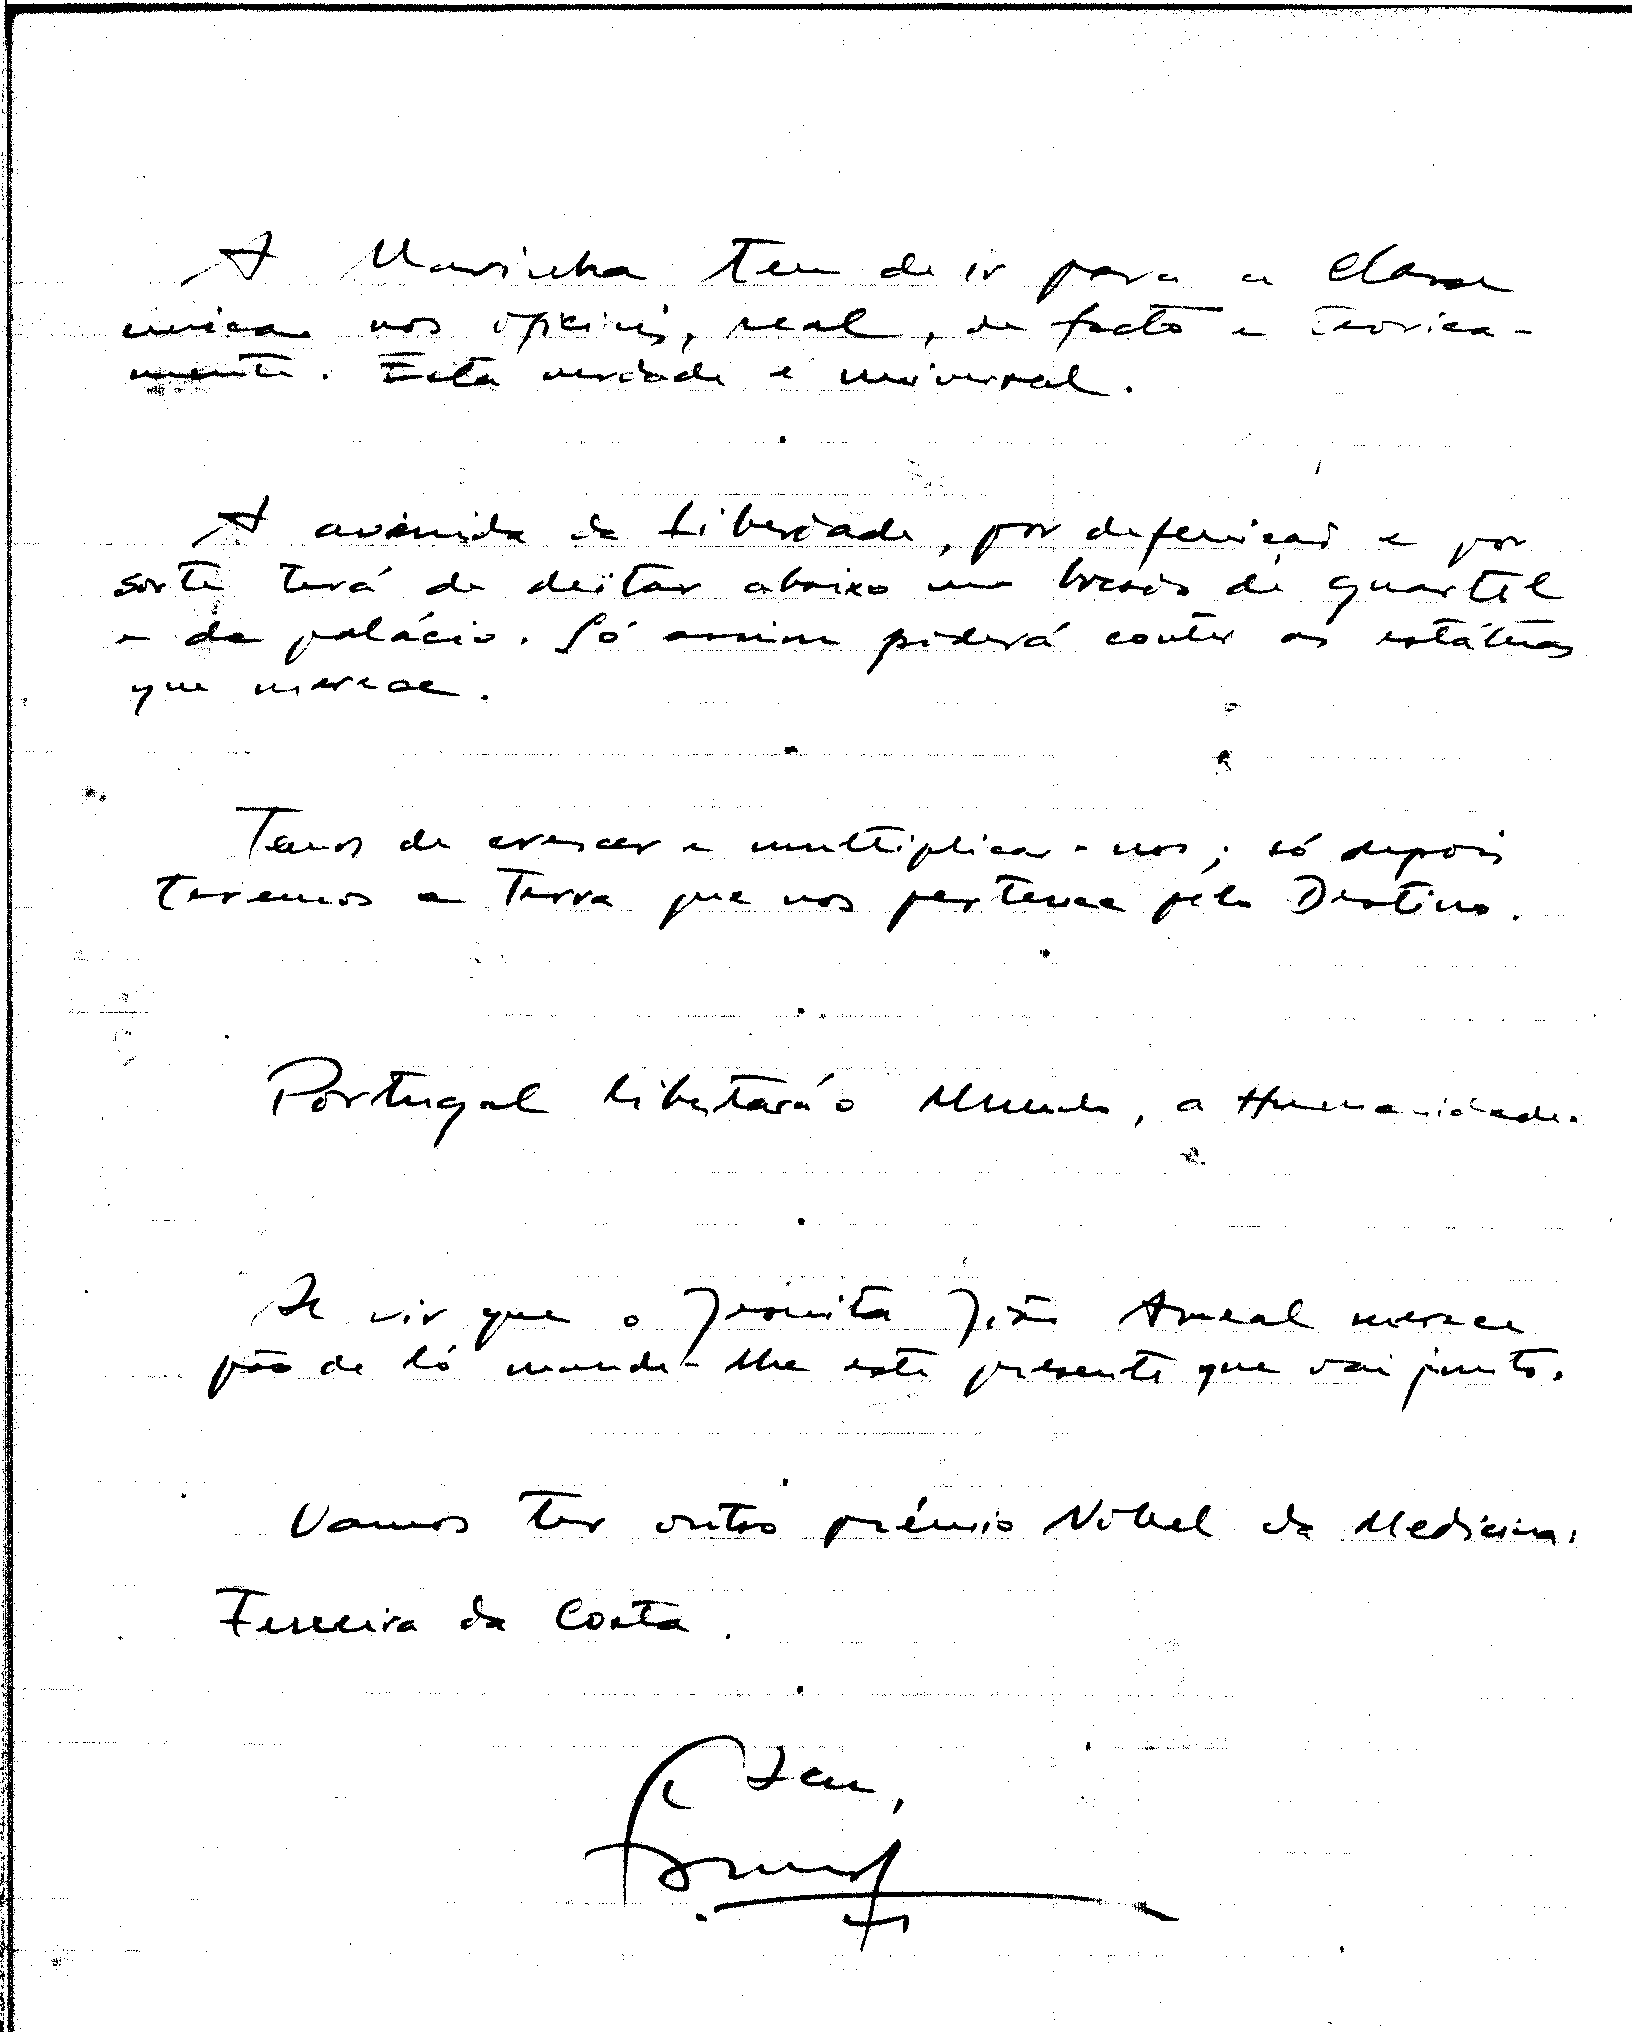 A Marinha tem de ir para a classe
unica nos oficiais, real, de facto e teorica-
mente. Esta verdade é universal.
A avenida da Liberdade, por defenição e por
sorte terá de deitar abaixo um bocado de quartel
e de palácio. Só assim poderá conter as estátuas
que merece.
Temos de crescer e multiplicar-nos; só depois
teremos a Terra que nos pertence pelo Destino.
Portugal libertará o Mundo, a Humanidade.
Se vir que o Jesuita João Ameal merece
pão de ló mande-lhe este presente que vai junto.
Vamos ter outro prémio Nobel da Medicina:
Ferreira da Costa.
Seu,